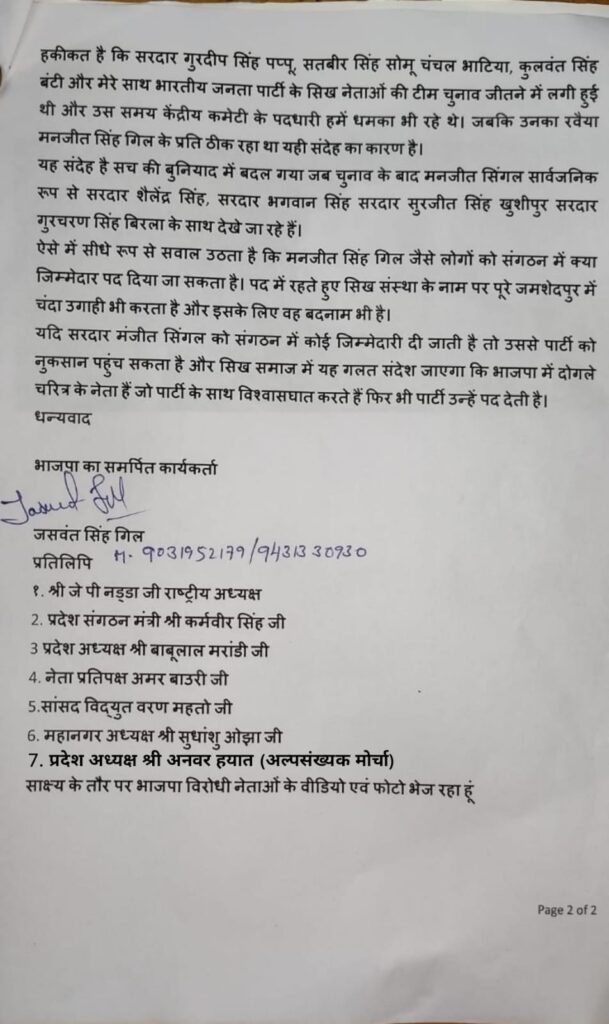 हकीकत है कि सरदार गुरदीप सिंह पप्पू, सतबीर सिंह सोमू चंचल भाटिया, कुलवंत सिंह
बंटी और मेरे साथ भारतीय जनता पार्टी के सिख नेताओं की टीम चुनाव जीतने में लगी हुई
थी और उस समय केंद्रीय कमेटी के पदधारी हमें धमका भी रहे थे। जबकि उनका रवैया
मनजीत सिंह गिल के प्रति ठीक रहा था यही संदेह का कारण है।
यह संदेह है सच की बुनियाद में बदल गया जब चुनाव के बाद मनजीत सिंगल सार्वजनिक
रूप से सरदार शैलेंद्र सिंह, सरदार भगवान सिंह सरदार सुरजीत सिंह खुशीपुर सरदार
गुरचरण सिंह बिरला के साथ देखे जा रहे हैं।
ऐसे में सीधे रूप से सवाल उठता है कि मनजीत सिंह गिल जैसे लोगों को संगठन में क्या
जिम्मेदार पद दिया जा सकता है। पद में रहते हुए सिख संस्था के नाम पर पूरे जमशेदपुर में
चंदा उगाही भी करता है और इसके लिए वह बदनाम भी है।
यदि सरदार मंजीत सिंगल को संगठन में कोई जिम्मेदारी दी जाती है तो उससे पार्टी को
नुकसान पहुंच सकता है और सिख समाज में यह गलत संदेश जाएगा कि भाजपा में दोगले
चरित्र के नेता हैं जो पार्टी के साथ विश्वासघात करते हैं फिर भी पार्टी उन्हें पद देती है।
धन्यवाद
भाजपा का समर्पित कार्यकर्ता
जसवंत सिंह गिल
प्रतिलिपि M. 9031952179/9431330930
१. श्री जे पी नड्डा जी राष्ट्रीय अध्यक्ष
2. प्रदेश संगठन मंत्री श्री कर्मवीर सिंह जी
3 प्रदेश अध्यक्ष श्री बाबूलाल मरांडी जी
4. नेता प्रतिपक्ष अमर बाउरी जी
5.सांसद विद्युत वरण महतो जी
6. महानगर अध्यक्ष श्री सुधांशु ओझा जी
7. प्रदेश अध्यक्ष श्री अनवर हयात (अल्पसंख्यक मोर्चा)
साक्ष्य के तौर पर भाजपा विरोधी नेताओं के वीडियो एवं फोटो भेज रहा हूं
Page 2 of 2